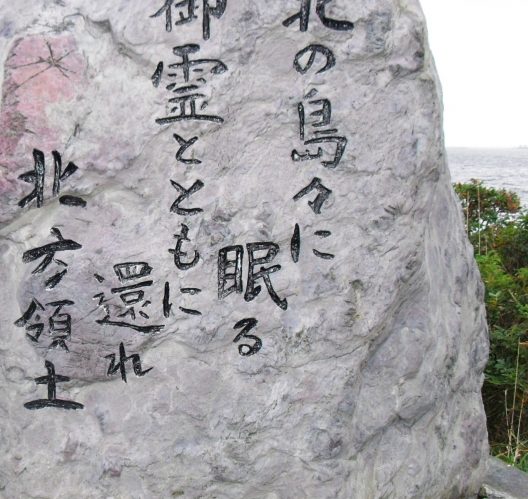 北の島々に
眠る
御霊とともに
還れ
北方領土